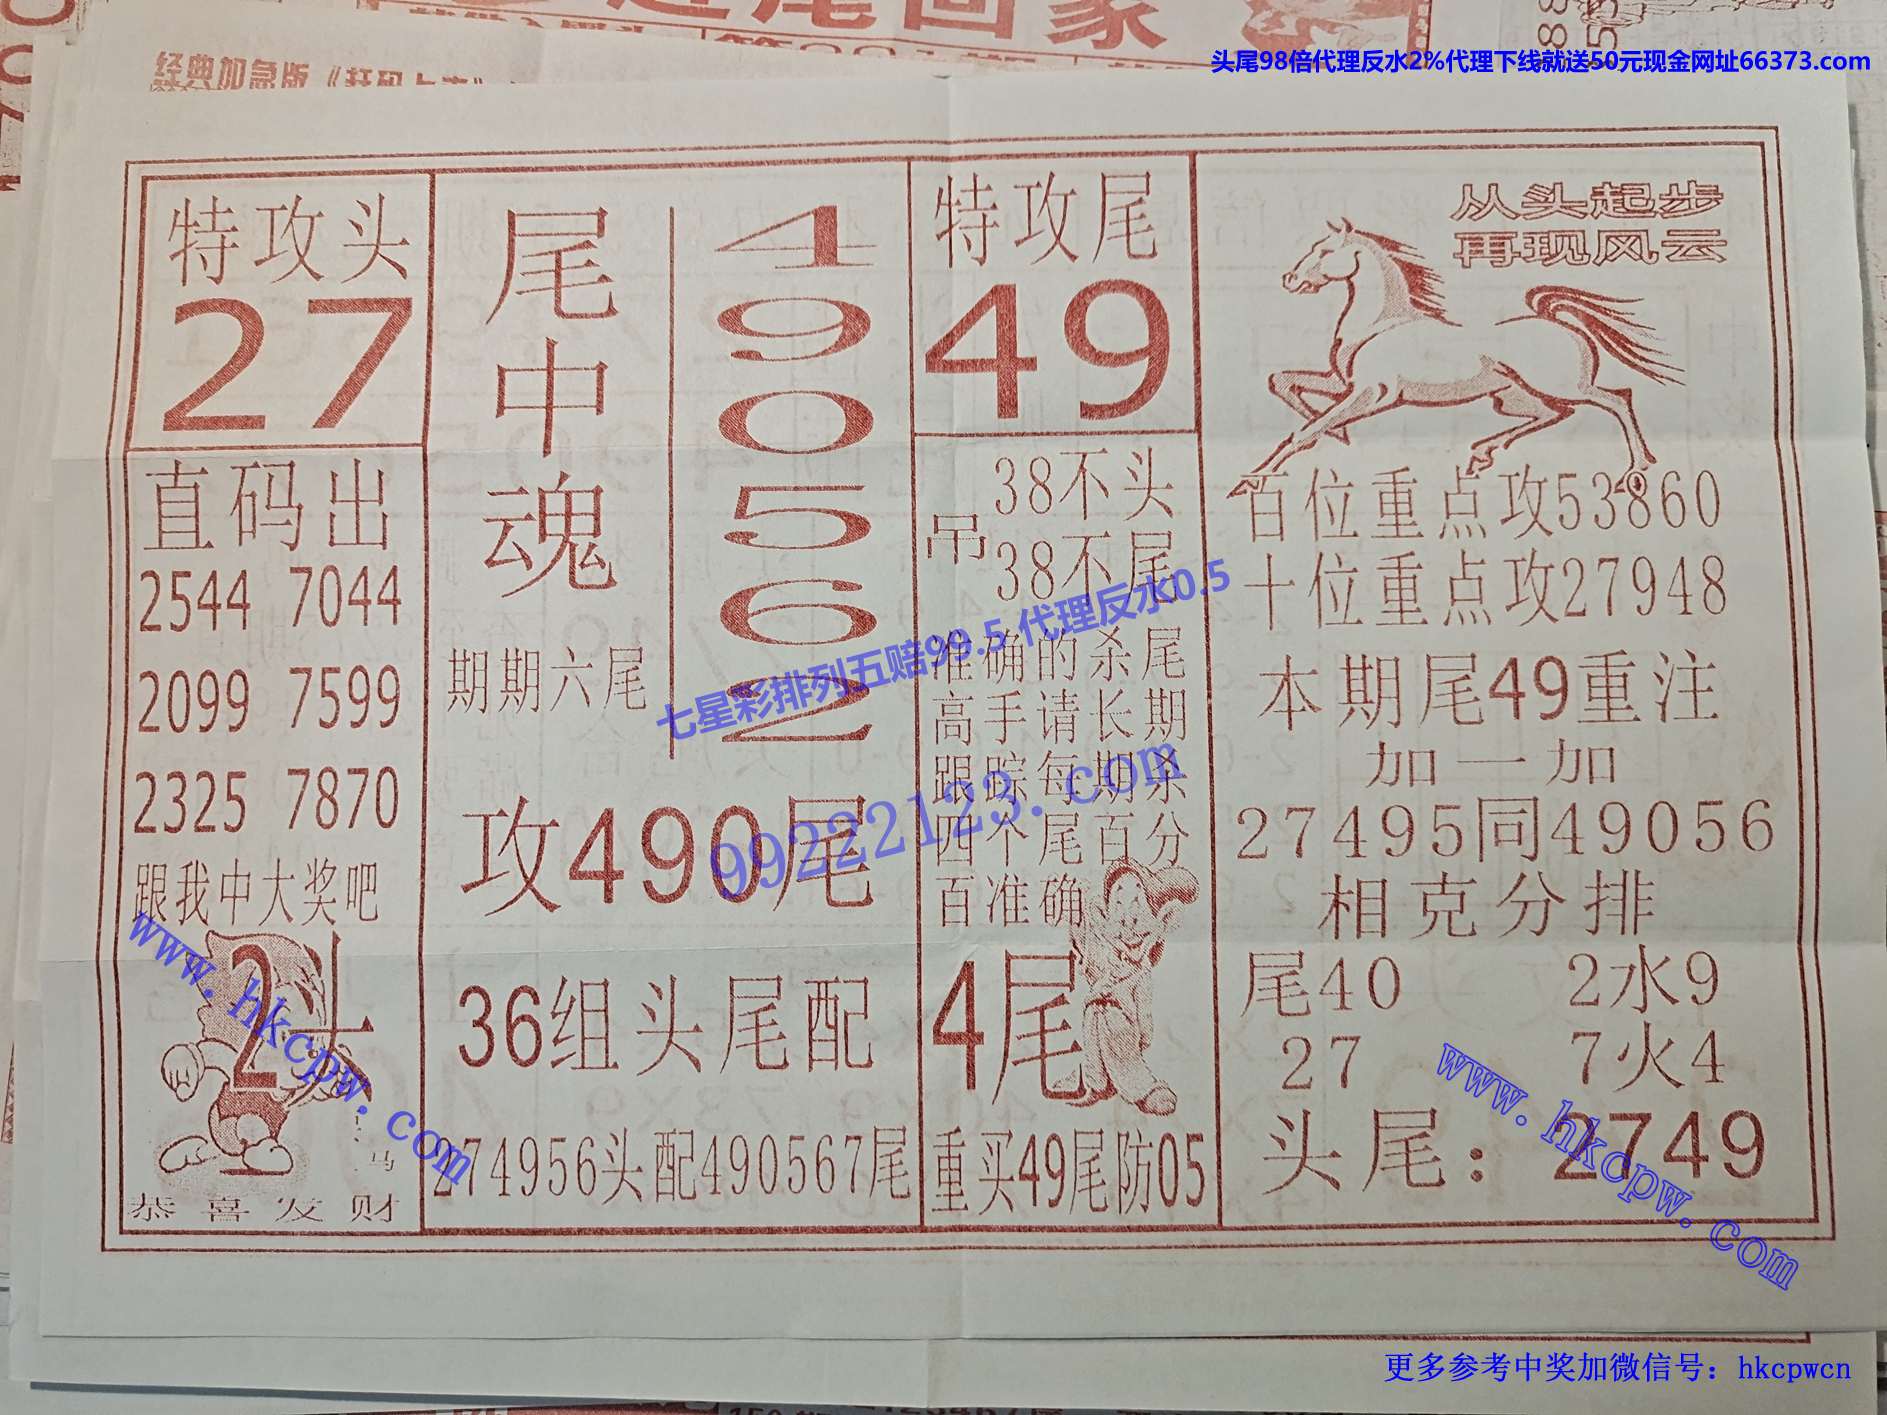 头尾98倍代理反水2%代理下线就送50元现金网址66373.com
经典加急版
特攻头
27
直码出
2544 7044
2099 7599
2325 7870
跟我中大奖吧
2头
马
恭喜发财
尾中魂
490562
期期六尾
攻490尾
36组头尾配
274956头配490567尾
特攻尾
49
吊
38不头
38不尾
准确的杀尾
高手请长期
跟踪每期杀
四个尾百分
百准确
4尾
重买49尾防05
从头起步
再现风云
百位重点攻53860
十位重点攻27948
本期尾49重注
加一加
27495同49056
相克分排
尾40 2水9
27 7火4
头尾：2749
七星彩排列五赔99.5 代理反水0.5
99222123.com
www.hkcpw.com
www.hkcpw.com
更多参考中奖加微信号：hkcpwcn